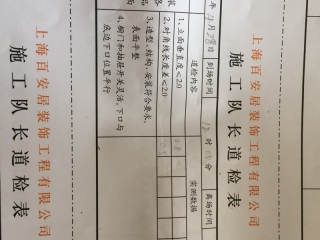 上海百安居装饰工程有限公司
施工队长道检表
年 月 日 到场时间 时 分 离场时间
道检内容 实测数据
1、立面垂直度<2.0
2、对角线长度差<2.0
3、造型、结构、安装符合要求、
表面平整
4、橱门和抽屉开关灵活,下口与
底边下口位置平行
上海百安居装饰工程有限公司
施工队长道检表